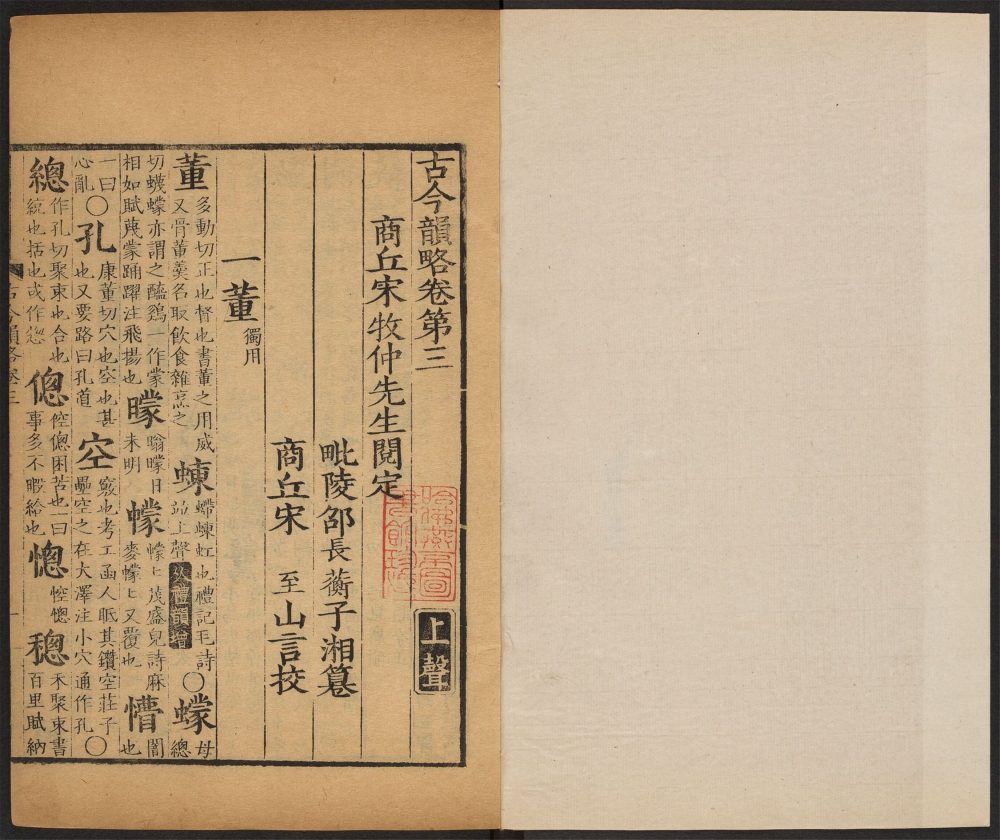 古今韻略卷第三 上聲
商丘宋牧仲先生閱定
毗陵邵長蘅子湘篹
商丘宋 至山言校
一董 獨用
董 多動切正也督也書董之用威又骨董羹名取飲食雜烹之 蝀 螮蝀虹也禮記毛詩竝上聲 从禮韻增 ○ 蠓 母總
切蠛蠓亦謂之醯鷄一作蒙相如賦蔑蒙踊躍注飛揚也 曚 曚日未明 幪 幪〻茂盛皃詩麻麥幪〻又覆也 懵 闇也
一曰心亂 ○ 孔 康董切穴也空也甚也又要路曰孔道 空 竅也考工函人眡其鑽空莊子壘空之在大澤注小穴通作孔 ○
總 作孔切聚束也合也統也括也或作 傯 倥傯困苦也一曰事多不暇給也 愡 悾愡 稯 禾聚束書百里賦納
古今韻略卷三 一